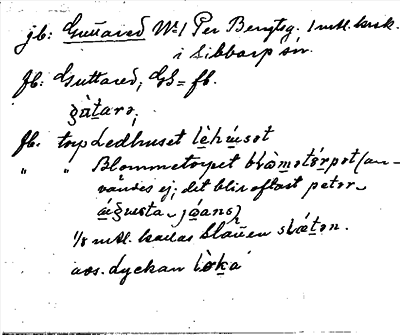 jb: Guttared No 1 Per Bengtsg. 1 mtl. krsk.
i Sibbarp sn.
fb: Guttared, GS = fb.
gàtarə,
fb. torp Ledhuset lèhúsət
" " Blommetorpet blòmətòrpət (an-
vändes ej; det blir oftast petər
águsta jóans)
1/8 mtl. kallas
avs. dyckan